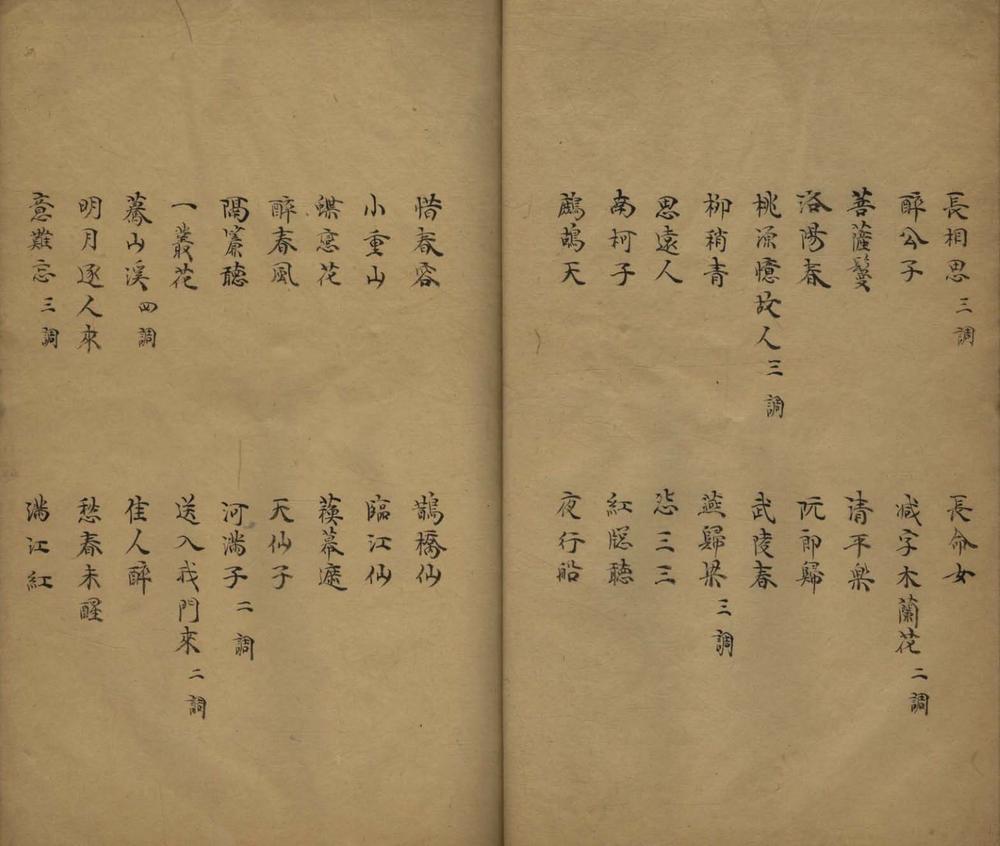 長相思 三調
長命女
醉公子
減字木蘭花 二調
菩薩鬘
清平樂
洛陽春
阮郎歸
桃源憶故人 三調
武陵春
柳稍青
燕歸梁 三調
思遠人
惉三三
南柯子
紅牕聽
鷓鴣天
夜行船
惜春容
鵲橋仙
小重山
臨江仙
蝶戀花
簇幕遮
醉春風
天仙子
隔簾聽
河滿子 二調
一叢花
送入我門來 二調
驀山溪 四調
佳人醉
明月逐人來
愁春未醒
意難忘 三調
滿江紅